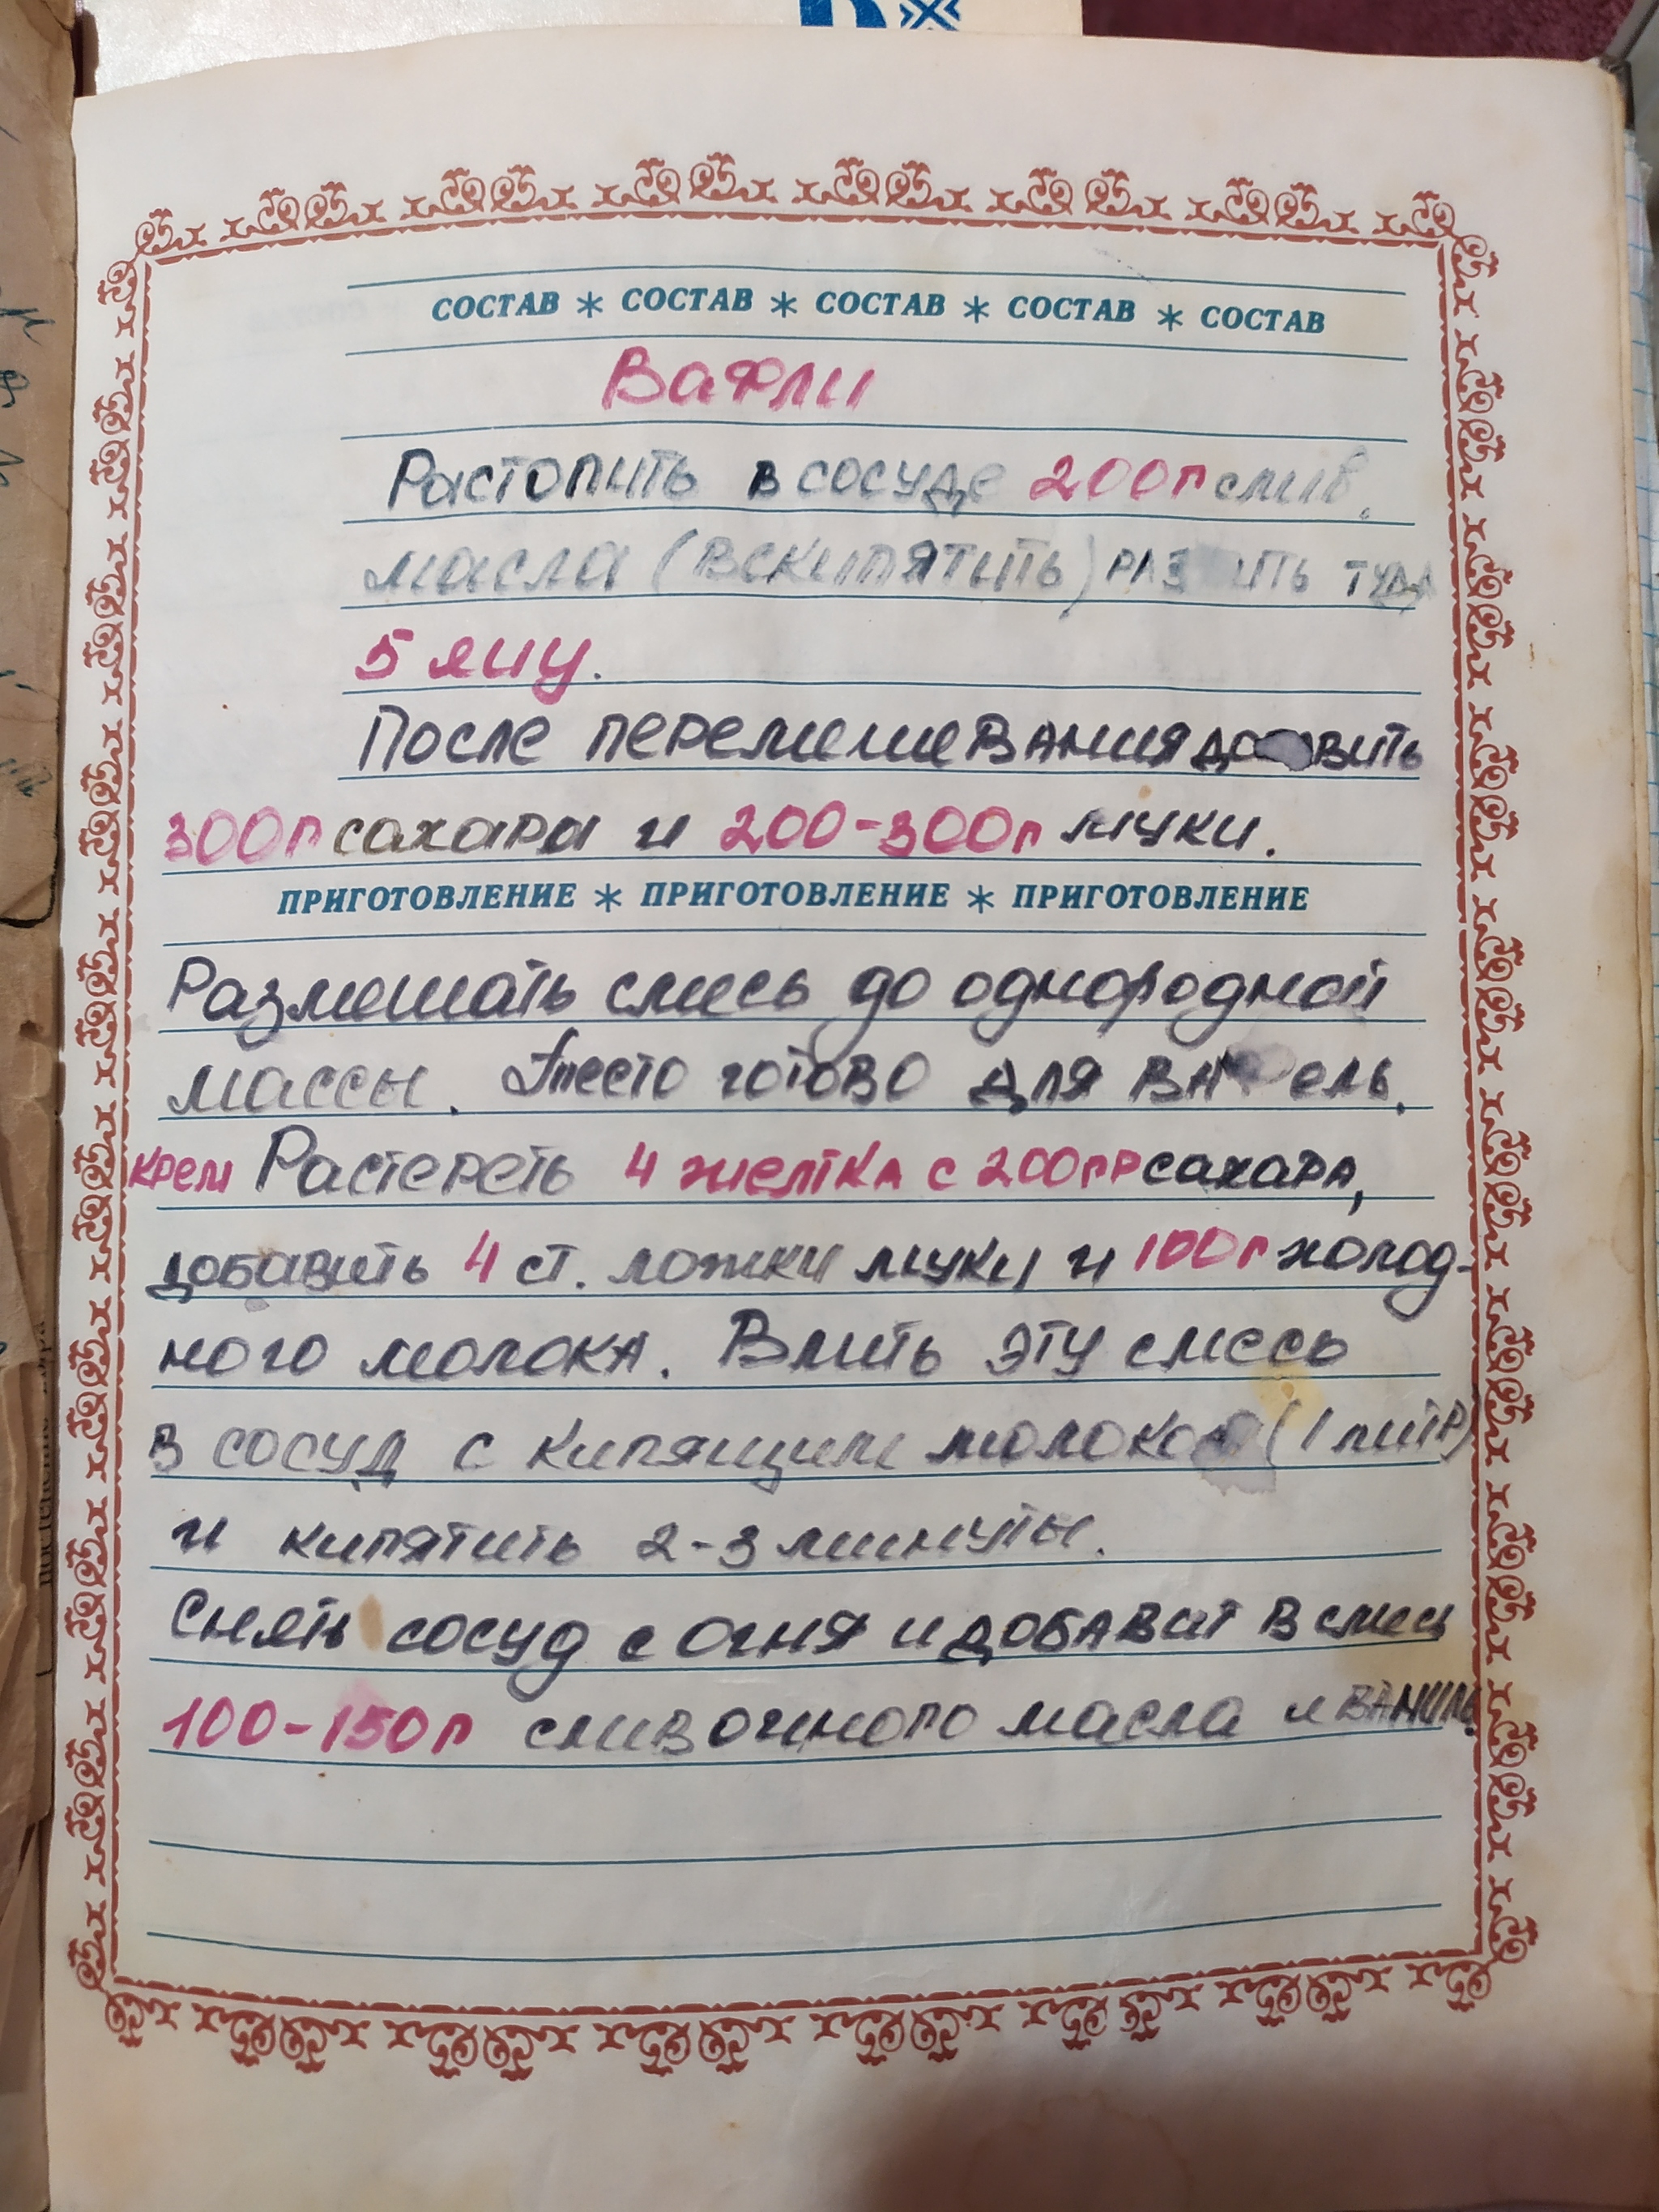 СОСТАВ * СОСТАВ * СОСТАВ * СОСТАВ * СОСТАВ
Вафли
Растопить в сосуде 200г слив.
масла (вскипятить) туда
5 яиц.
После перемешивания добавить
300г сахара и 200-300г муки.
ПРИГОТОВЛЕНИЕ * ПРИГОТОВЛЕНИЕ * ПРИГОТОВЛЕНИЕ
Размешать смесь до однородной
массы. Тесто готово для вафель.
крем Растереть 4 желтка с 200гр сахара,
добавить 4 ст. ложки муки и 100г холод-
ного молока. Влить эту смесь
в сосуд с кипящим молоком (1 литр)
и кипятить 2-3 минуты.
Снять сосуд с огня и добават в смесь
100-150г сливочного масла и ваниль.